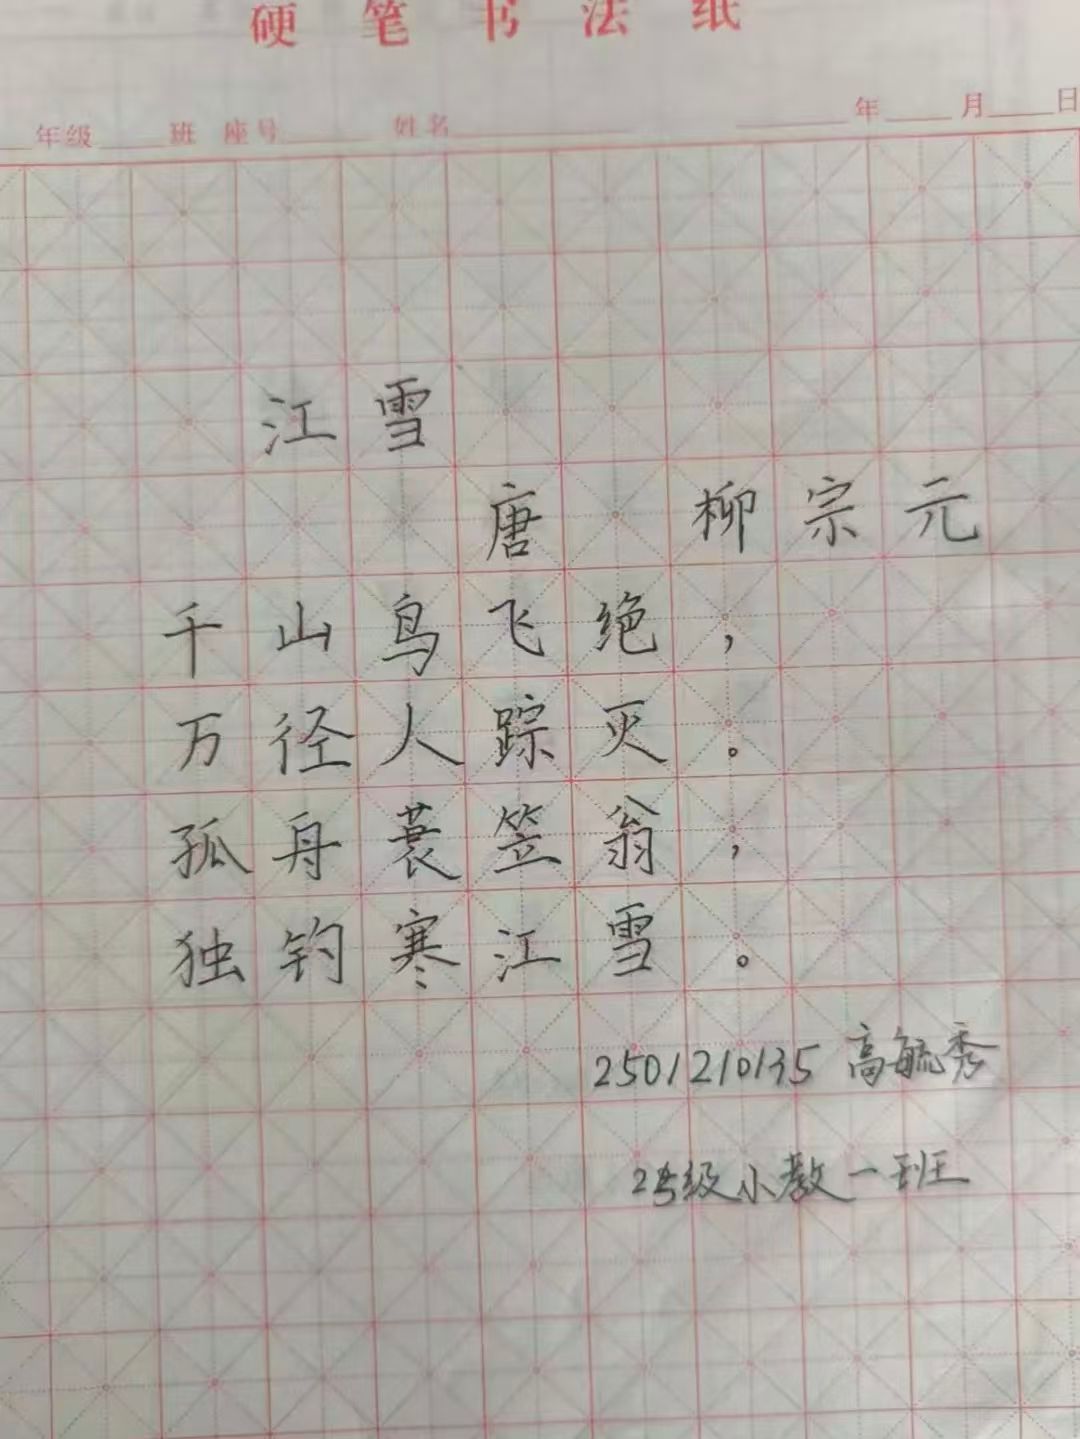 硬笔书法纸
年级 班 座号 姓名 年 月 日
江雪
唐 柳宗元
千山鸟飞绝，
万径人踪灭。
孤舟蓑笠翁，
独钓寒江雪。
2501210135 高毓秀
25级小教一班